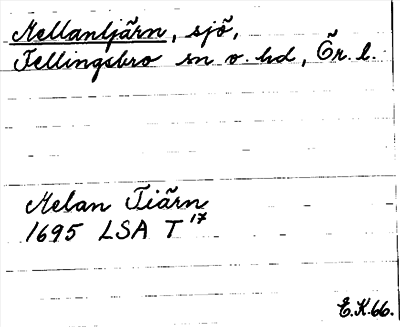 Mellantjärn, sjö,
Fellingsbro sn o. hd, Ör. l.
Melan Tiärn
1695 LSA T 17
E.K.66.